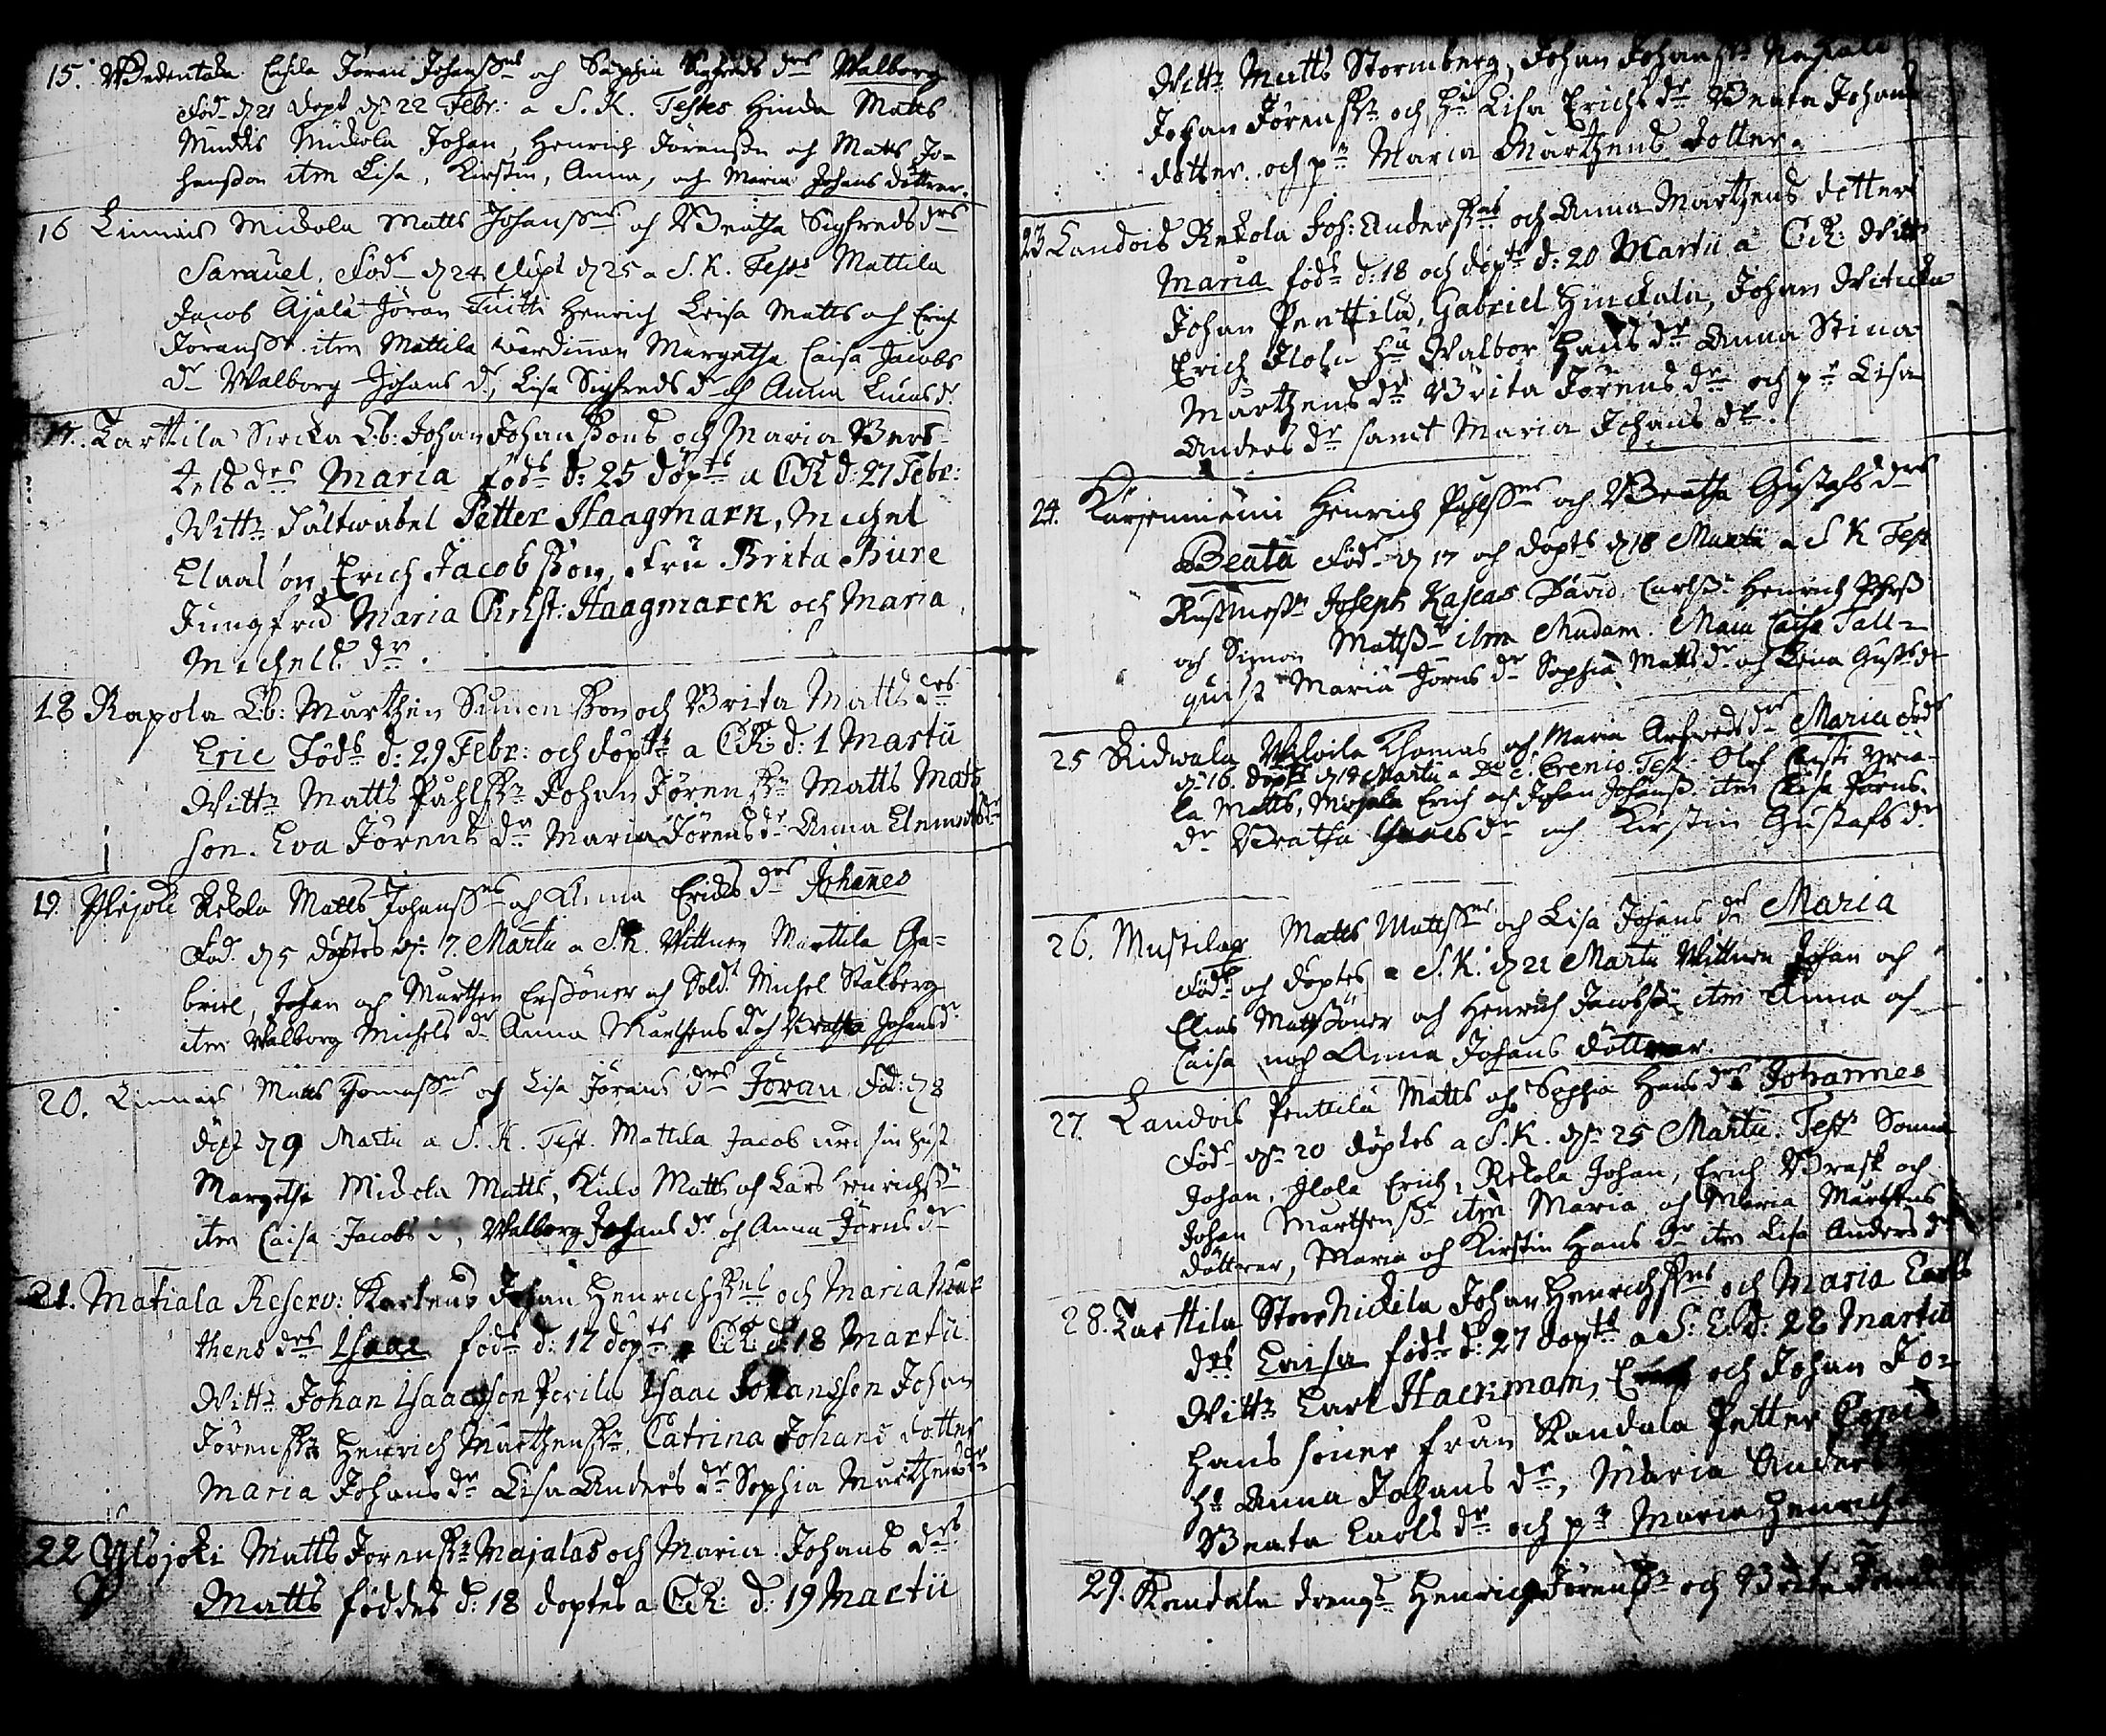 15. Wedentaka Eskila Jöran Johanssns och Sophia Sigfreds drs Walborg
Föd. d. 21 döpt d. 22 Febr: a S. K. Testes Hinda Matts
Mickola Johan, Henrich Jöransson och Matts Jo=
hansson item Lisa, Kirstin, Anna, och Maria Johans döttrar.
16 Linnais Mickola Matts Johanssns och Beatha Sigfreds drs
Samuel. Föds d. 24 döpt d. 25 a S. K. Test. Mattila
Jacob Ajala Jöran Tuitti Henrich Matts och Erich
Jöranss. item Mattila Wärdinnan Margetha Caisa Jacobs
dr Walborg Johans dr, Lisa Sigfreds dr och Anna Lucas dr
17. Karttila Sircka L:b: Johan Johanssons och Maria Ber=
tels drs Maria föds d: 25 döpts a CK d. 27 Febr:
Wittn Fältwäbel Petter Haagmark, Michel
Claasson, Erich Jacobsson, Fru Brita Bure
Jungfru Maria Christ: Haagmarck och Maria
Michels dr.
18 Rapola L:b: Marthin Simonsson och Brita Matts drs
Eric Föds d: 29 Febr: och döpts a CK: d: 1 Martii
Wittn Matts Påhlssn Johan Jörenssn Matts Mats
son. Eva Jörens dr Maria Jörens dr Anna Clemets dr
19. Ylejoki Rekola Matts Johanssns och Anna Erichs drs Johannes
Föd. d. 5 döptes d. 7. Martii a S.K. Wittnen Marttila Ga=
briel, Johan och Marthen Erssöner och Sold. Michel Stålberg
item Walborg Michels dr Anna Marthens dr och Beatha Johans dr
20. Linnais Matts Thomassns och Lisa Jörans drs Jöran Föd: d. 8
döpt d. 9 Martii a S. K. Test. Mattila Jacob med sin hust.
Margetha Mickola Matts, Matts och Lars Henrichssn
item Caisa Jacobs d, Walborg Johans dr och Anna Jörns dr
21. Matiala Reserv: Karlens Johan Henrichssns och Maria Mar
thens drs Isaac föds d: 17 döpts a CK: d: 18 Martii
Wittn Johan Isaacsson Perila Isaac Johansson Johan
Jörenssn Henrich Marthenssn, Catrina Johans dotter
Maria Johans dr Lisa Anders dr Sophia Marthens dr
22 Ylöjoki Matts Jörenssn Majalas och Maria Johans drs
Matts föddes d: 18 döptes a CK: d: 19 Martii
Wittn Matts Stormberg, Johan Johanssn
Johan Jörenssn och Hu Lisa Erichs dr Beata Johans
dotter och pn Maria Marthens dotter.
23 Landois Rekola Joh: Anderssns och Anna Marthens dotters
Maria föds d: 18 och döpts d: 20 Martii a CK: Witt
Johan Penttila, Gabriel Hinckala, Johan
Erich Ilola Hu Walbor Hans dr Anna Stina
Marthens dr Brita Jörens dr och pn Lisa
Anders dr samt Maria Johans dr.
24. Kärjenniemi Henrich Påhlssns och Beatha Gustafs drs
Beata Föd. d. 17 och döpts d. 18 Martii a S K Test
Joseph Kascas David Carlss. Henrich
och Simon Mattss. item Madam. Maria Caisa Tall=
quist Maria Jörns dr Sophia Matts dr och Lena Gusts dr
25 Ridwala Thomas och Maria Arfweds drs Maria Föd
d. 16. döpt d. 17 Martii a Test Olof
la Matts, Erich och Johan Johanss. item Lisa Jörns.
dr Beatha dr och Kirstin Gustafs dr
26. Mustila Matts Mattssns och Lisa Johans dr Maria
Föd och döptes a S. K. d. 21 Martii Wittnen Johan och
Elias Mattssöner och Henrich Jacobssn item Anna och
Caisa och Anna Johans döttrar.
27. Landois Penttila Matts och Sophia Hans drs Johannes
Föd d. 20 döptes a S. K. d. 25 Martii. Test
Johan, Ilola Erich, Rekola Johan, Erich Brask och
Johan Marthenss. item Maria och Maria Marthens
döttrar, Maria och Kirstin Hans dr item Lisa Anders dr
28. Karttila Stor Nickila Johan Henrichssns och Maria Carls
drs Caisa föds d: 27 döpts a S: C: d: 28 Martii
Wittn Carl Hackman, och Johan Jo=
hans söner från Kandala Petter
Hu Anna Johans dr, Maria Anders
Beata Carls dr och pn Maria Henrich
29. Kandala drengs Henrich Jörenssn och Brita